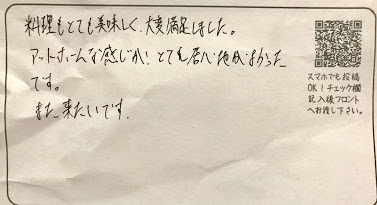 料理もとても美味しく、大変満足しました。
アットホームな感じが、とても居心地がよかった
です。
また来たいです。
スマホでも投稿
OK！チェック欄
記入後フロント
へお渡し下さい。